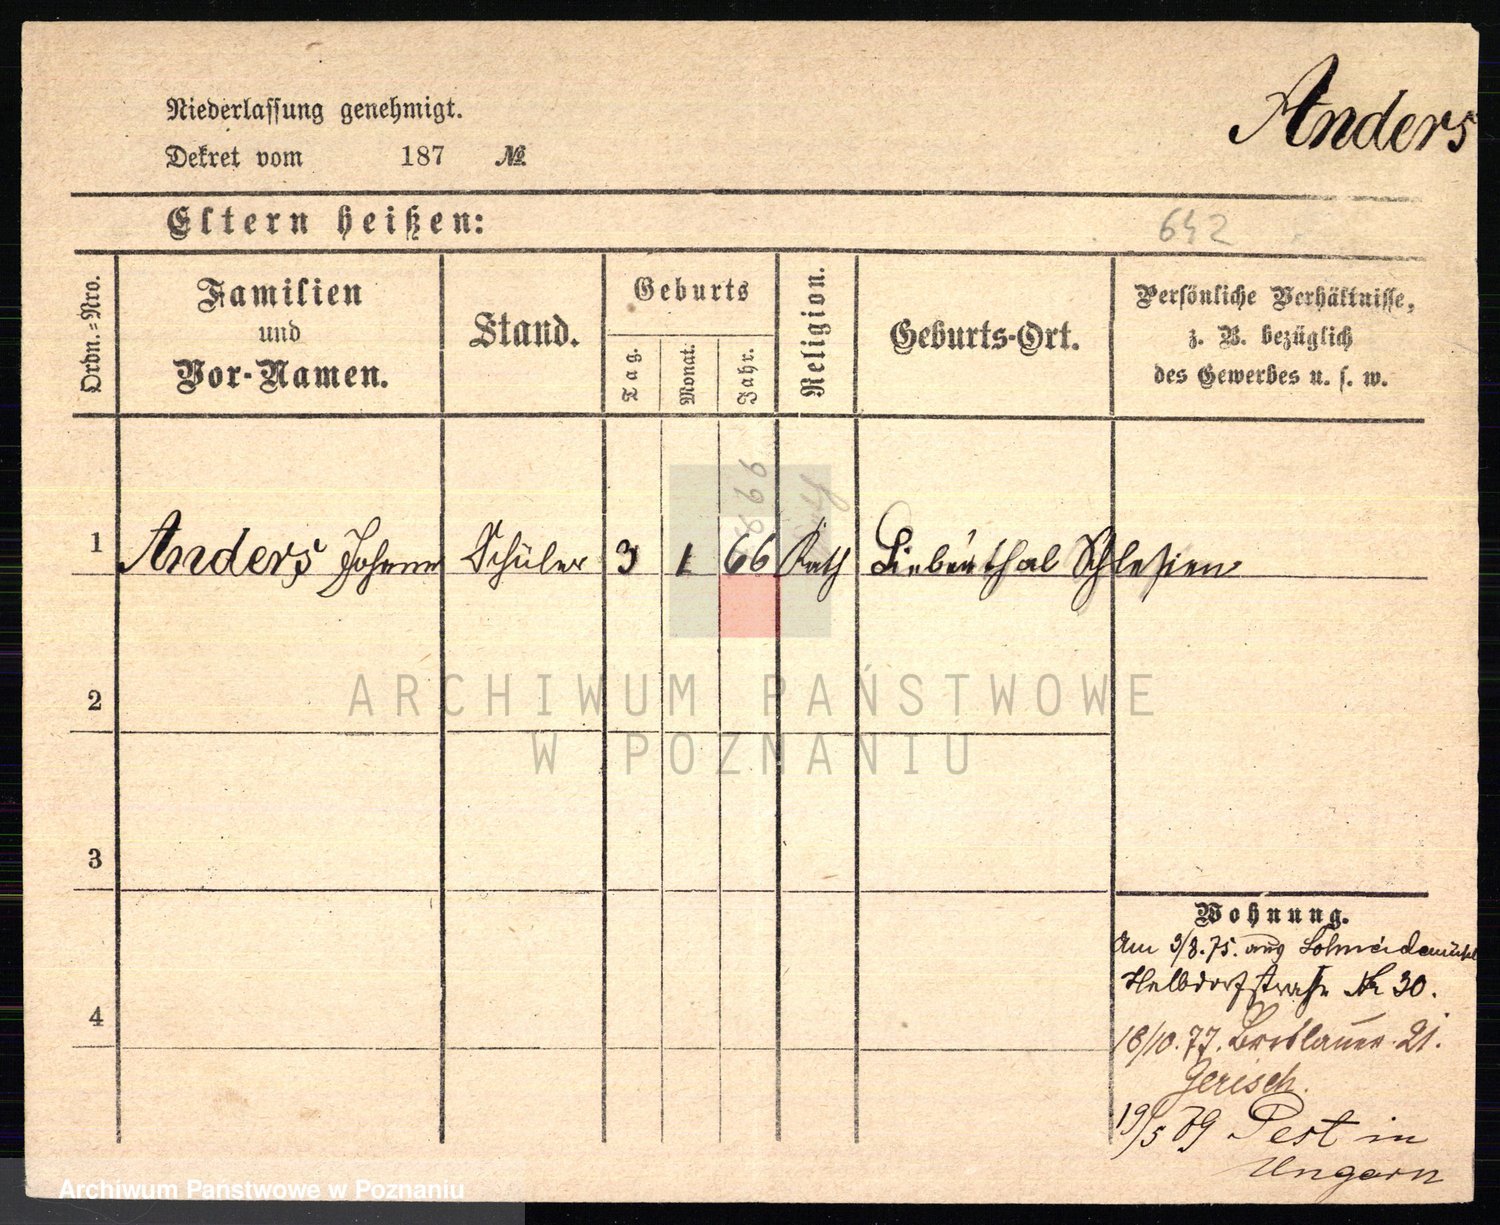 Anders
Niederlassung genehmigt.
Dekret vom 187 №
Eltern heißen:
642
Ordn.-Nro.
Familien
und
Vor-Namen.
Stand.
Geburts
Tag.
Monat.
Jahr.
Religion.
Geburts-Ort.
Persönliche Verhältnisse,
z. B. bezüglich
des Gewerbes u. s. w.
1 Anders Johann Schüler 3 1 66 Kath Liebenthal Schlesien
2
ARCHIWUM PAŃSTWOWE
W POZNANIU
3
Wohnung.
Am 3/8.75. aus Schneidemühl
Halbdorfstraße № 30.
4
18/10.77. Breslauer. 21.
Jerisch.
19/5 79 Pest in
Ungarn
Archiwum Państwowe w Poznaniu